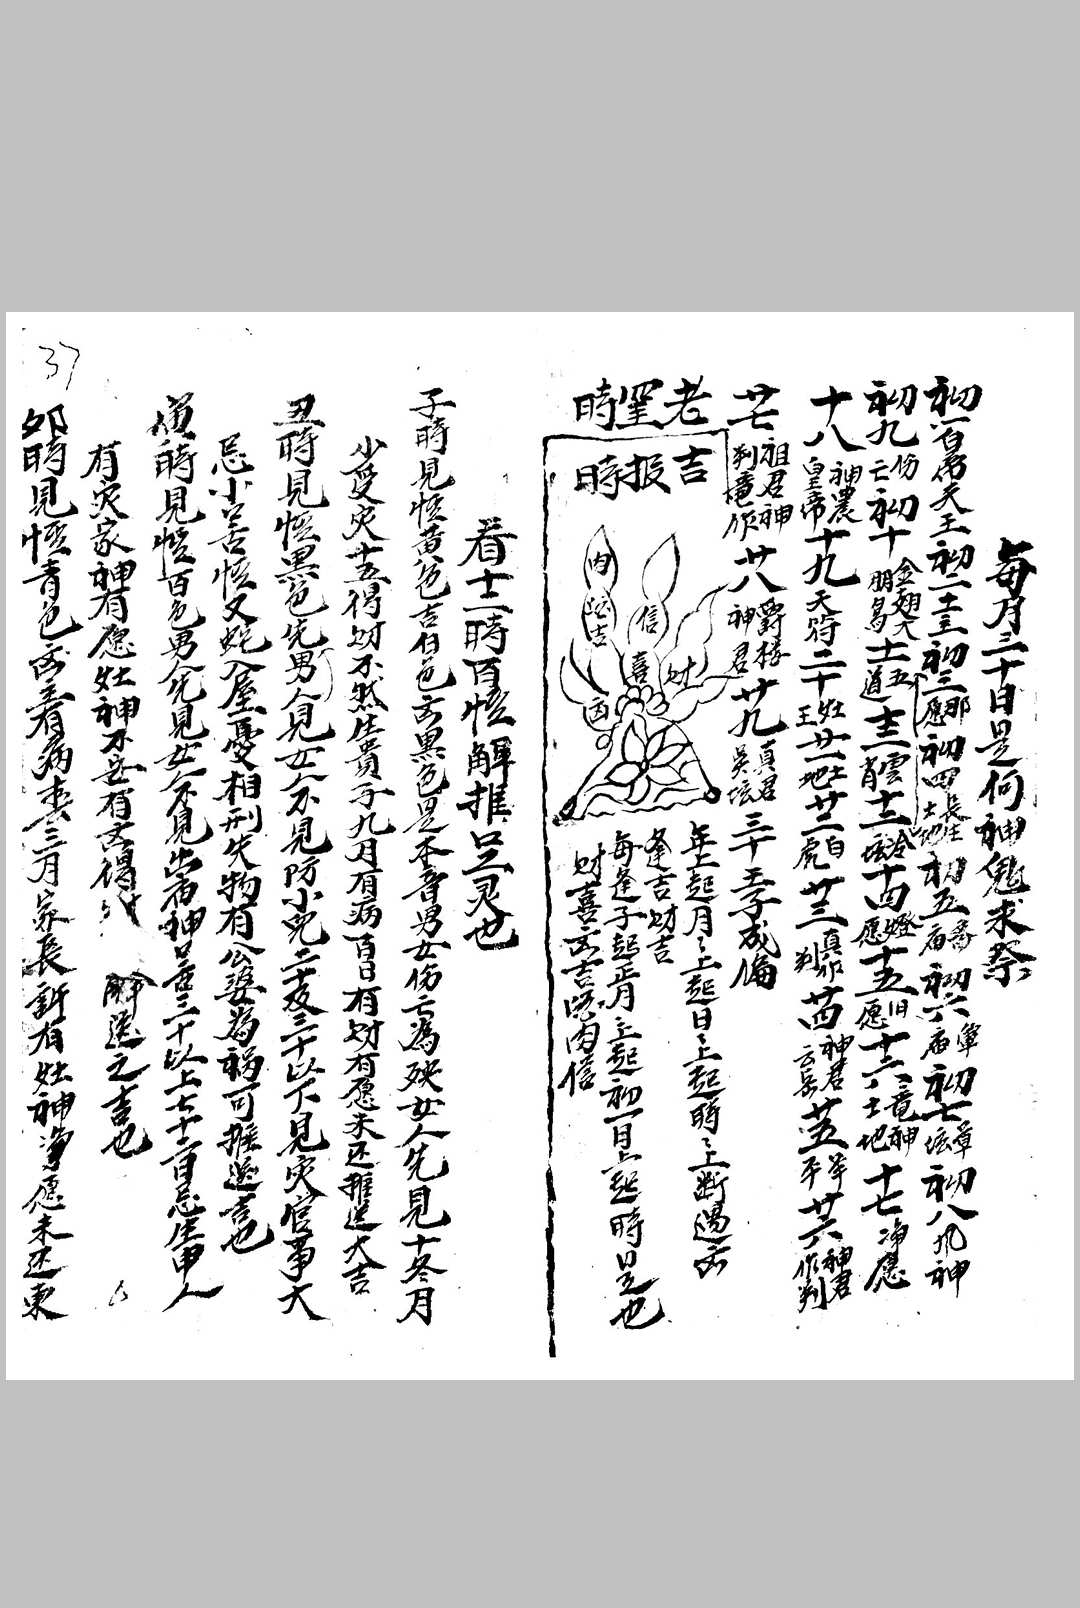 每月三十日是何神鬼求祭
初一百
天王初二
初三那愿初四長生土地初五番庙初六傘庙初七草坛初八九神
初九伤亡初十金翅大朋鳥十一五道十二雲霄十三冷坛十四燈愿十五旧愿十六竜神土地十七净愿
十八神農皇帝十九天符二十灶王廿一土地廿二白虎廿三真
判廿四神君方岳廿五羊
廿六神君作判
廿七祖君神判竜作廿八爵楼神君廿九真君吳坛三十王子成倫
老
時
吉报時
肉
吉
凶
信
喜
财
年上起月月上起日日上起時時上断遇凶
逢吉财吉
每逢子起正月月上起初一日上起時是也
财喜凶吉
肉信
看十二時百怪解推是灵也
子時見怪黄色吉白色凶黑色是本音男女伤亡為殃女人先見十冬月
少受灾十五得财不然生貴子九月有病百日有财有愿未还推送大吉
丑時見怪黑色先男人見女人不見防小兒二十及三十以下見灾官事大
忌小口舌怪又蛇入屋憂相刑失物有公婆為祸可推送吉也
寅時見怪百色男人先見女人不見出南神口舌三十以上七十二百忌生甲人
有灾家神有愿灶神不安有凶得
解送之吉也
卯時見怪青色凶主有病
三月家長
有灶神净愿未还東
37